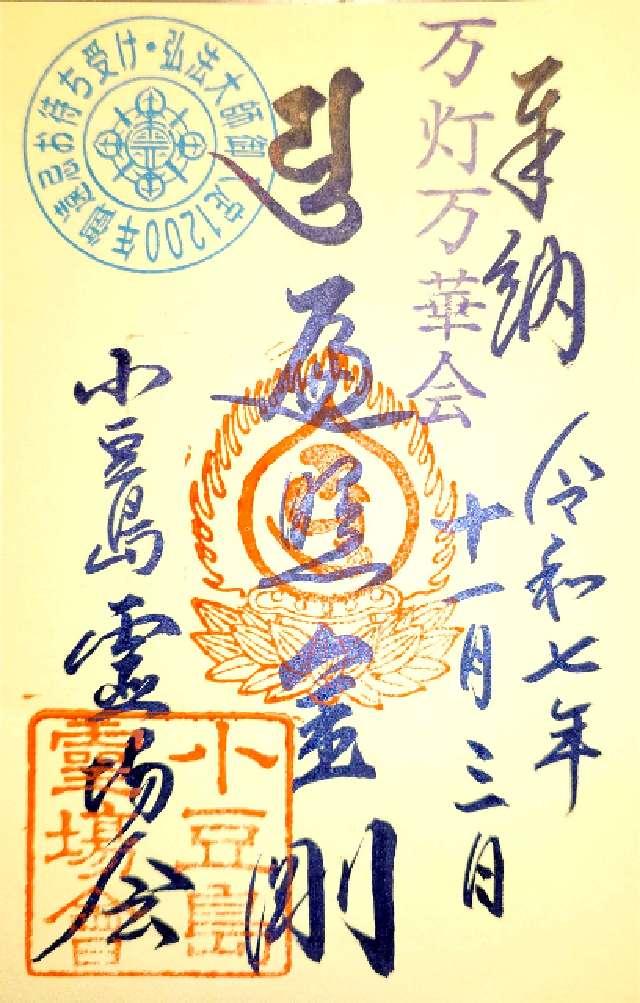 奉納
万灯万華会
令和七年
十一月三日
遍照金剛
小豆島霊場会
小豆島
霊場會
弘法大師御入定1200年御遠忌お待ち受け・